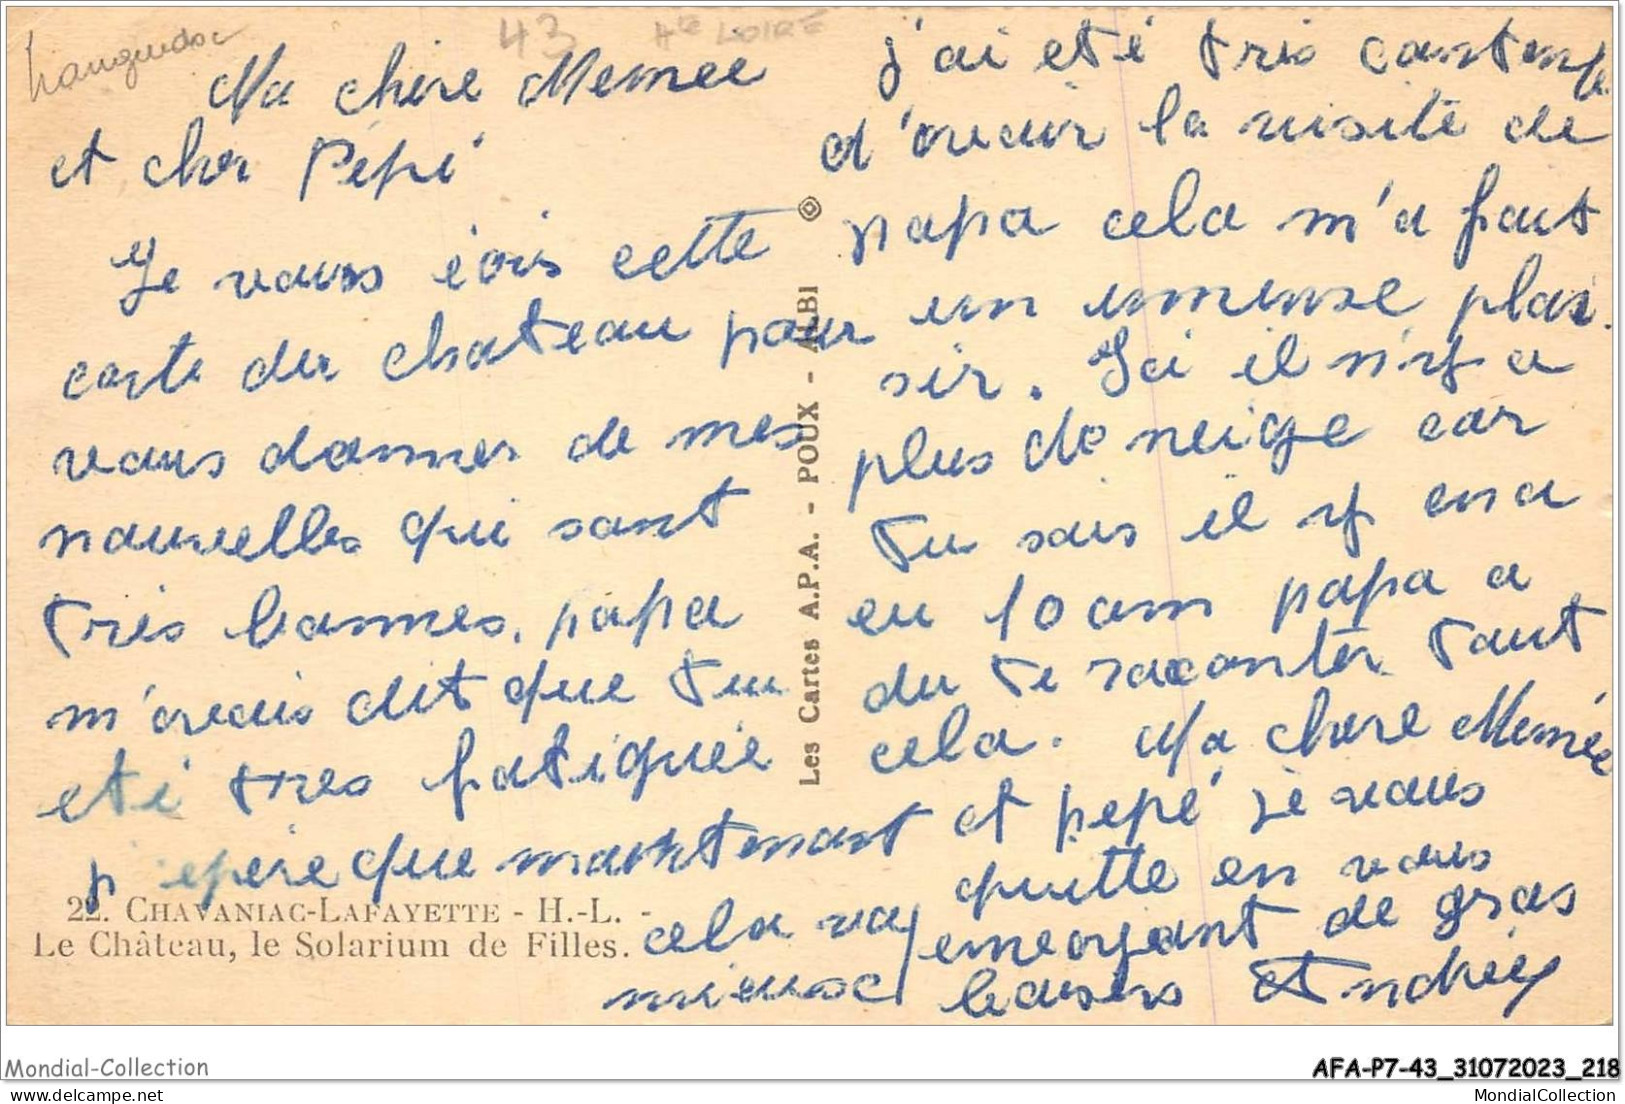 Languedoc
43 Hte LOIRE
Ma chère Memée
et cher Pépé
Je vous écris cette
carte du chateau pour
vous donner de mes
nouvelles qui sont
très bonnes. papa
m'avais dit que tu
eté très fatiguée
j'espère que maintenant
cela va
mieux
j'ai eté très contente
d'avoir la visite de
papa cela m'a fait
un immense plai
sir. Ici il n'y a
plus de neige car
tu sais il y en a
eu 10 cm papa a
du te raconter tout
cela. Ma chere Memée
et pepé je vous
quitte en vous
envoyant de gros
baisers
Les Cartes A.P.A. - POUX - ALBI
22. CHAVANIAC-LAFAYETTE - H.-L. -
Le Château, le Solarium de Filles.
Mondial-Collection
AFA-P7-43_31072023_218
www.delcampe.net
MondialCollection